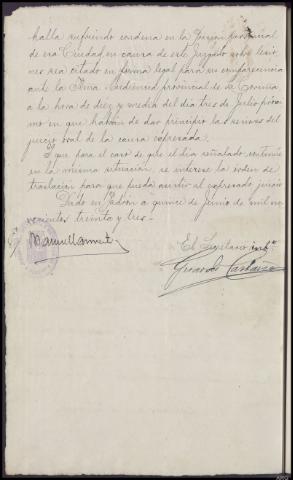 halla sufriendo condena en la Prisión provincial
de esa Ciudad en causa de este Juzgado sobre lesio-
nes sea citado en forma legal para su comparecencia
ante la Ilma. Audiencia provincial de La Coruña
a la hora de diez y media del día tres de Julio próxi-
mo en que habrán de dar principio las sesiones del
juicio oral de la causa expresada.
Y que para el caso de que el día señalado continúe
en la misma situación, se interese la orden de
traslación para que pueda asistir al expresado juicio
Dado en Padrón a quince de Junio de mil no-
vecientos treinta y tres.-
El Secretario intº
Gerardo